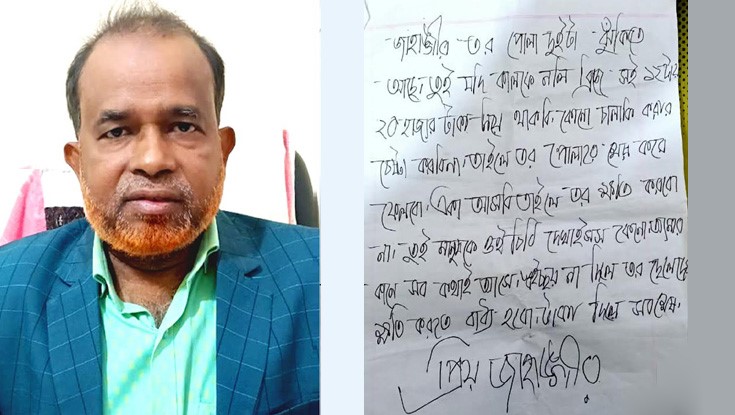 জাহাঙ্গীর তর পোলা দুইটা ঝুঁকিতে
আছে, তুই যদি কালকে নলি ব্রিজ
২০ হাজার টাকা নিয়ে থাকবি, কোনো চালাকি করার
চেষ্টা করবিনা, তাইলে তর পোলারে শেষ করে
ফেলবো, একা আসবি তাইলে তর ক্ষতি করবো
না, তুই মানুষকে এই চিঠি দেখাইসস কেনো আমার
কানে সব কথাই আসে, না দিলে তর ছেলেদে
ক্ষতি করতে বাধ্য হবো, টাকা দিলে সব শেষ,
প্রিয় জাহাঙ্গীর